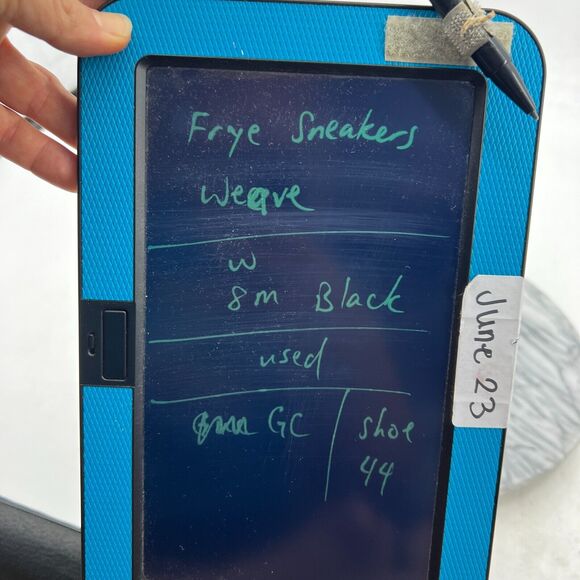 Frye Sneakers
Weave
W
8m Black
used
GC
Shoe
44
June 23